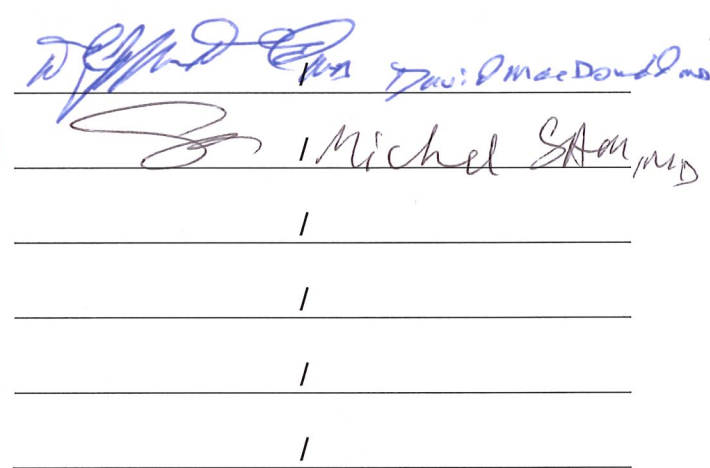 / David MacDonald MD
/ Michel SAM, MD
/
/
/
/